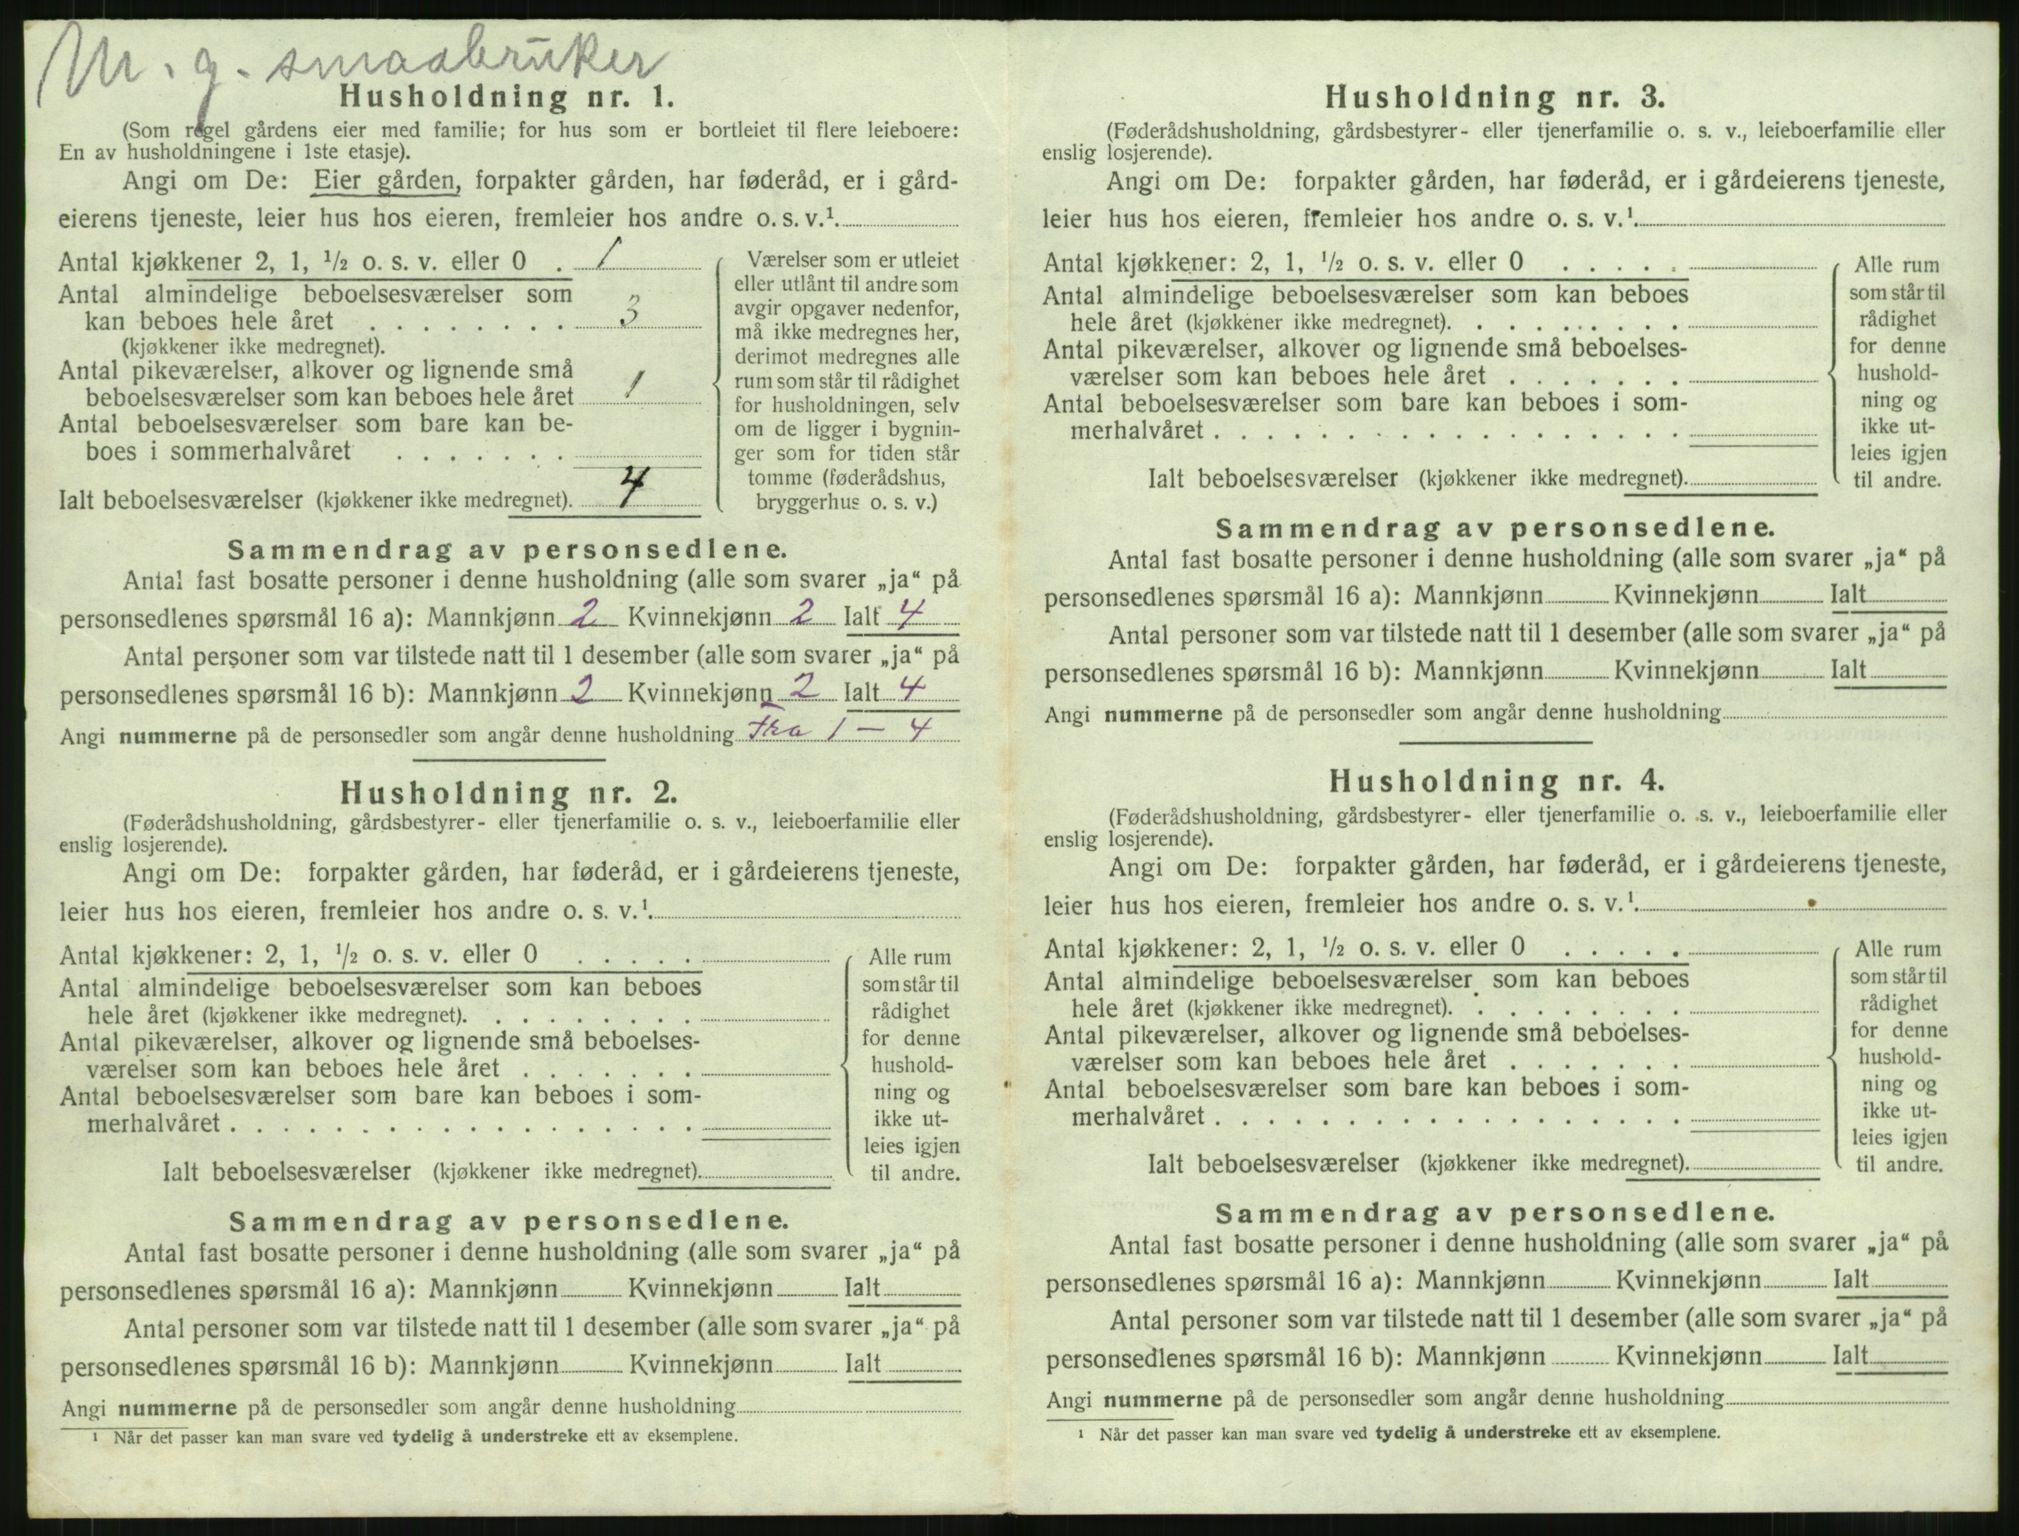 M. g. smaabruker
Husholdning nr. 1.
(Som regel gårdens eier med familie; for hus som er bortleiet til flere leieboere:
En av husholdningene i 1ste etasje).
Angi om De: Eier gården, forpakter gården, har føderåd, er i gård-
eierens tjeneste, leier hus hos eieren, fremleier hos andre o. s. v.¹.
Antal kjøkkener 2, 1, ½ o. s. v. eller 0 . 1
Antal almindelige beboelsesværelser som
kan beboes hele året . . . . . . . . 3
(kjøkkener ikke medregnet).
Antal pikeværelser, alkover og lignende små
beboelsesværelser som kan beboes hele året 1
Antal beboelsesværelser som bare kan be-
boes i sommerhalvåret . . . . . . .
Ialt beboelsesværelser (kjøkkener ikke medregnet). 4
Værelser som er utleiet
eller utlånt til andre som
avgir opgaver nedenfor,
må ikke medregnes her,
derimot medregnes alle
rum som står til rådighet
for husholdningen, selv
om de ligger i bygnin-
ger som for tiden står
tomme (føderådshus,
bryggerhus o. s. v.)
Sammendrag av personsedlene.
Antal fast bosatte personer i denne husholdning (alle som svarer „ja“ på
personsedlenes spørsmål 16 a): Mannkjønn 2 Kvinnekjønn 2 Ialt 4
Antal personer som var tilstede natt til 1 desember (alle som svarer „ja“ på
personsedlenes spørsmål 16 b): Mannkjønn 2 Kvinnekjønn 2 Ialt 4
Angi nummerne på de personsedler som angår denne husholdning Fra 1 — 4
Husholdning nr. 2.
(Føderådshusholdning, gårdsbestyrer- eller tjenerfamilie o. s. v., leieboerfamilie eller
enslig losjerende).
Angi om De: forpakter gården, har føderåd, er i gårdeierens tjeneste,
leier hus hos eieren, fremleier hos andre o. s. v.¹.
Antal kjøkkener: 2, 1, ½ o. s. v. eller 0 . . . . .
Antal almindelige beboelsesværelser som kan beboes
hele året (kjøkkener ikke medregnet). . . . . . . . .
Antal pikeværelser, alkover og lignende små beboelses-
værelser som kan beboes hele året . . . . . . .
Antal beboelsesværelser som bare kan beboes i som-
merhalvåret . . . . . . . . . . . . . . . . . .
Ialt beboelsesværelser (kjøkkener ikke medregnet).
Alle rum
som står til
rådighet
for denne
hushold-
ning og
ikke ut-
leies igjen
til andre.
Sammendrag av personsedlene.
Antal fast bosatte personer i denne husholdning (alle som svarer „ja“ på
personsedlenes spørsmål 16 a): Mannkjønn Kvinnekjønn Ialt
Antal personer som var tilstede natt til 1 desember (alle som svarer „ja“ på
personsedlenes spørsmål 16 b): Mannkjønn Kvinnekjønn Ialt
Angi nummerne på de personsedler som angår denne husholdning
¹ Når det passer kan man svare ved tydelig å understreke ett av eksemplene.
Husholdning nr. 3.
(Føderådshusholdning, gårdsbestyrer- eller tjenerfamilie o. s. v., leieboerfamilie eller
enslig losjerende).
Angi om De: forpakter gården, har føderåd, er i gårdeierens tjeneste,
leier hus hos eieren, fremleier hos andre o. s. v.¹.
Antal kjøkkener: 2, 1, ½ o. s. v. eller 0 . . . . .
Antal almindelige beboelsesværelser som kan beboes
hele året (kjøkkener ikke medregnet). . . . . . . . .
Antal pikeværelser, alkover og lignende små beboelses-
værelser som kan beboes hele året . . . . . . .
Antal beboelsesværelser som bare kan beboes i som-
merhalvåret . . . . . . . . . . . . . . . . . .
Ialt beboelsesværelser (kjøkkener ikke medregnet).
Alle rum
som står til
rådighet
for denne
hushold-
ning og
ikke ut-
leies igjen
til andre.
Sammendrag av personsedlene.
Antal fast bosatte personer i denne husholdning (alle som svarer „ja“ på
personsedlenes spørsmål 16 a): Mannkjønn Kvinnekjønn Ialt
Antal personer som var tilstede natt til 1 desember (alle som svarer „ja“ på
personsedlenes spørsmål 16 b): Mannkjønn Kvinnekjønn Ialt
Angi nummerne på de personsedler som angår denne husholdning
Husholdning nr. 4.
(Føderådshusholdning, gårdsbestyrer- eller tjenerfamilie o. s. v., leieboerfamilie eller
enslig losjerende).
Angi om De: forpakter gården, har føderåd, er i gårdeierens tjeneste,
leier hus hos eieren, fremleier hos andre o. s. v.¹.
Antal kjøkkener: 2, 1, ½ o. s. v. eller 0 . . . . .
Antal almindelige beboelsesværelser som kan beboes
hele året (kjøkkener ikke medregnet). . . . . . . . .
Antal pikeværelser, alkover og lignende små beboelses-
værelser som kan beboes hele året . . . . . . .
Antal beboelsesværelser som bare kan beboes i som-
merhalvåret . . . . . . . . . . . . . . . . . .
Ialt beboelsesværelser (kjøkkener ikke medregnet).
Alle rum
som står til
rådighet
for denne
hushold-
ning og
ikke ut-
leies igjen
til andre.
Sammendrag av personsedlene.
Antal fast bosatte personer i denne husholdning (alle som svarer „ja“ på
personsedlenes spørsmål 16 a): Mannkjønn Kvinnekjønn Ialt
Antal personer som var tilstede natt til 1 desember (alle som svarer „ja“ på
personsedlenes spørsmål 16 b): Mannkjønn Kvinnekjønn Ialt
Angi nummerne på de personsedler som angår denne husholdning
¹ Når det passer kan man svare ved tydelig å understreke ett av eksemplene.